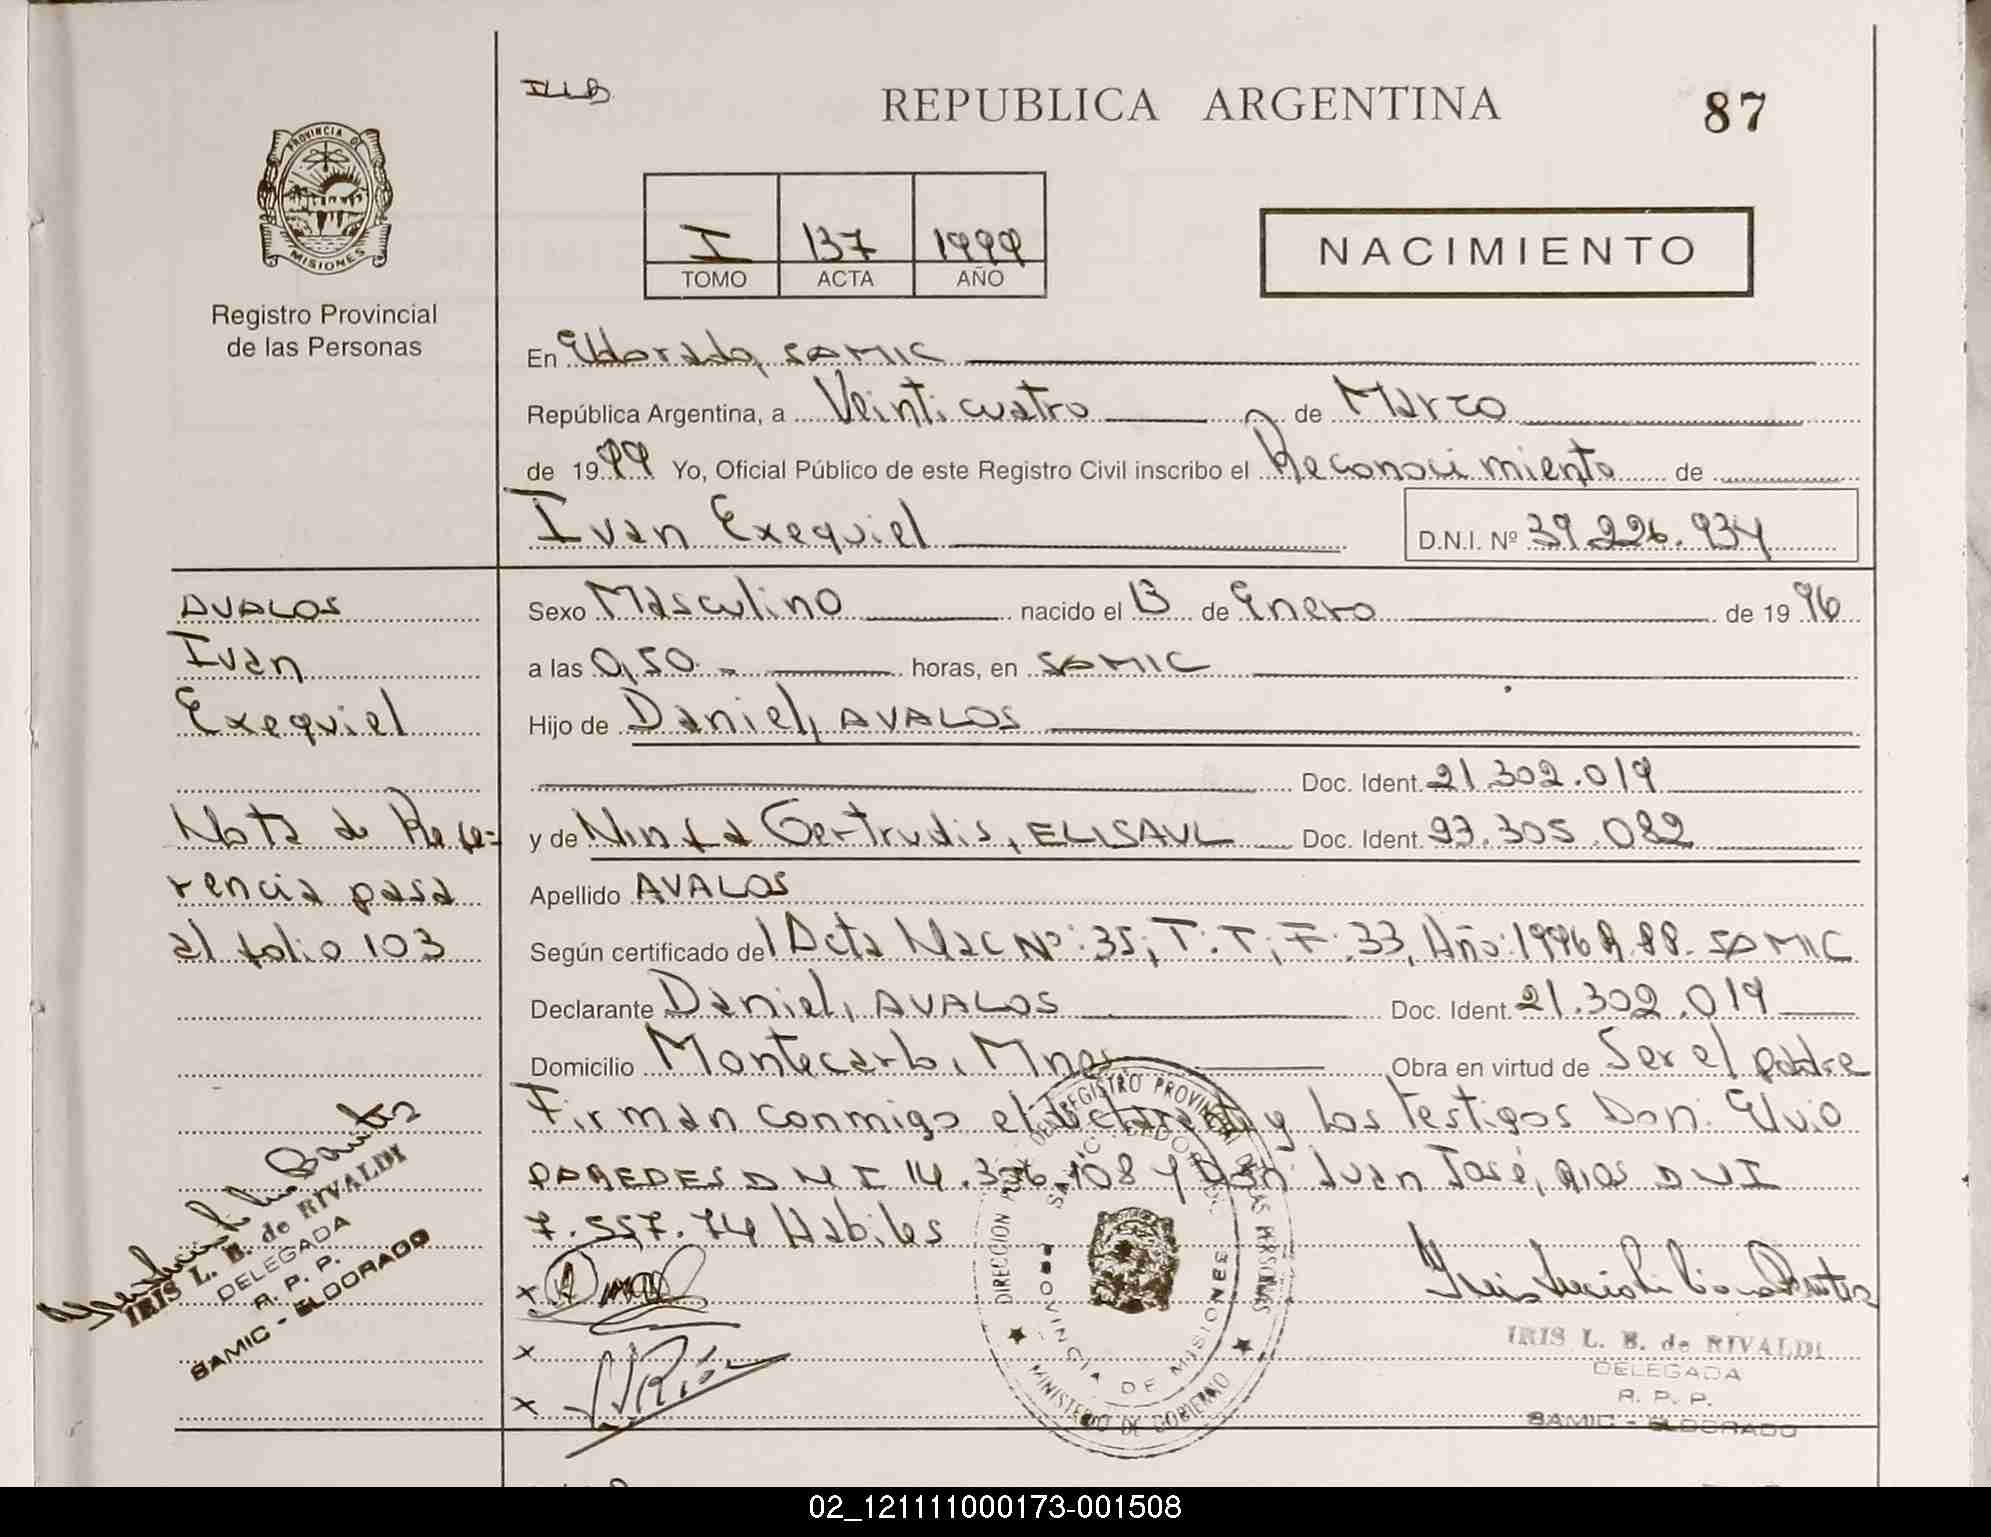 ILB
REPUBLICA ARGENTINA
87
PROVINCIA DE
MISIONES
Registro Provincial
de las Personas
I 137 1999
TOMO ACTA AÑO
NACIMIENTO
En Eldorado, SAMIC
República Argentina, a Veinticuatro de Marzo
de 1999 Yo, Oficial Público de este Registro Civil inscribo el Reconocimiento de
Ivan Exequiel
D.N.I. Nº 39.226.934
AVALOS
Ivan
Exequiel
Nota de Refe-
rencia pasa
al folio 103
Sexo Masculino nacido el 13 de Enero de 1996
a las 0,50 horas, en SAMIC
Hijo de Daniel, AVALOS
Doc. Ident. 21.302.019
y de Ninfa Gertrudis, ELISAUL Doc. Ident. 93.305.082
Apellido AVALOS
Según certificado de Acta Nac Nº: 35, T: I, F: 33, Año: 1996 R.PP. SAMIC
Declarante Daniel, AVALOS Doc. Ident. 21.302.019
Domicilio Montecarlo, Mnes Obra en virtud de Ser el padre
Firman conmigo el declarante y los testigos Don: Elvio
PAREDES DNI 14.336.108 y Don: Juan José, RIOS DNI
7.557.74 Habiles
DIRECCION DEL REGISTRO PROVINCIAL DE LAS PERSONAS
MINISTERIO DE GOBIERNO
PROVINCIA DE MISIONES
IRIS L. B. de RIVALDI
DELEGADA
R. P. P.
SAMIC - ELDORADO
IRIS L. B. de RIVALDI
DELEGADA
R. P. P.
SAMIC - ELDORADO
02_121111000173-001508